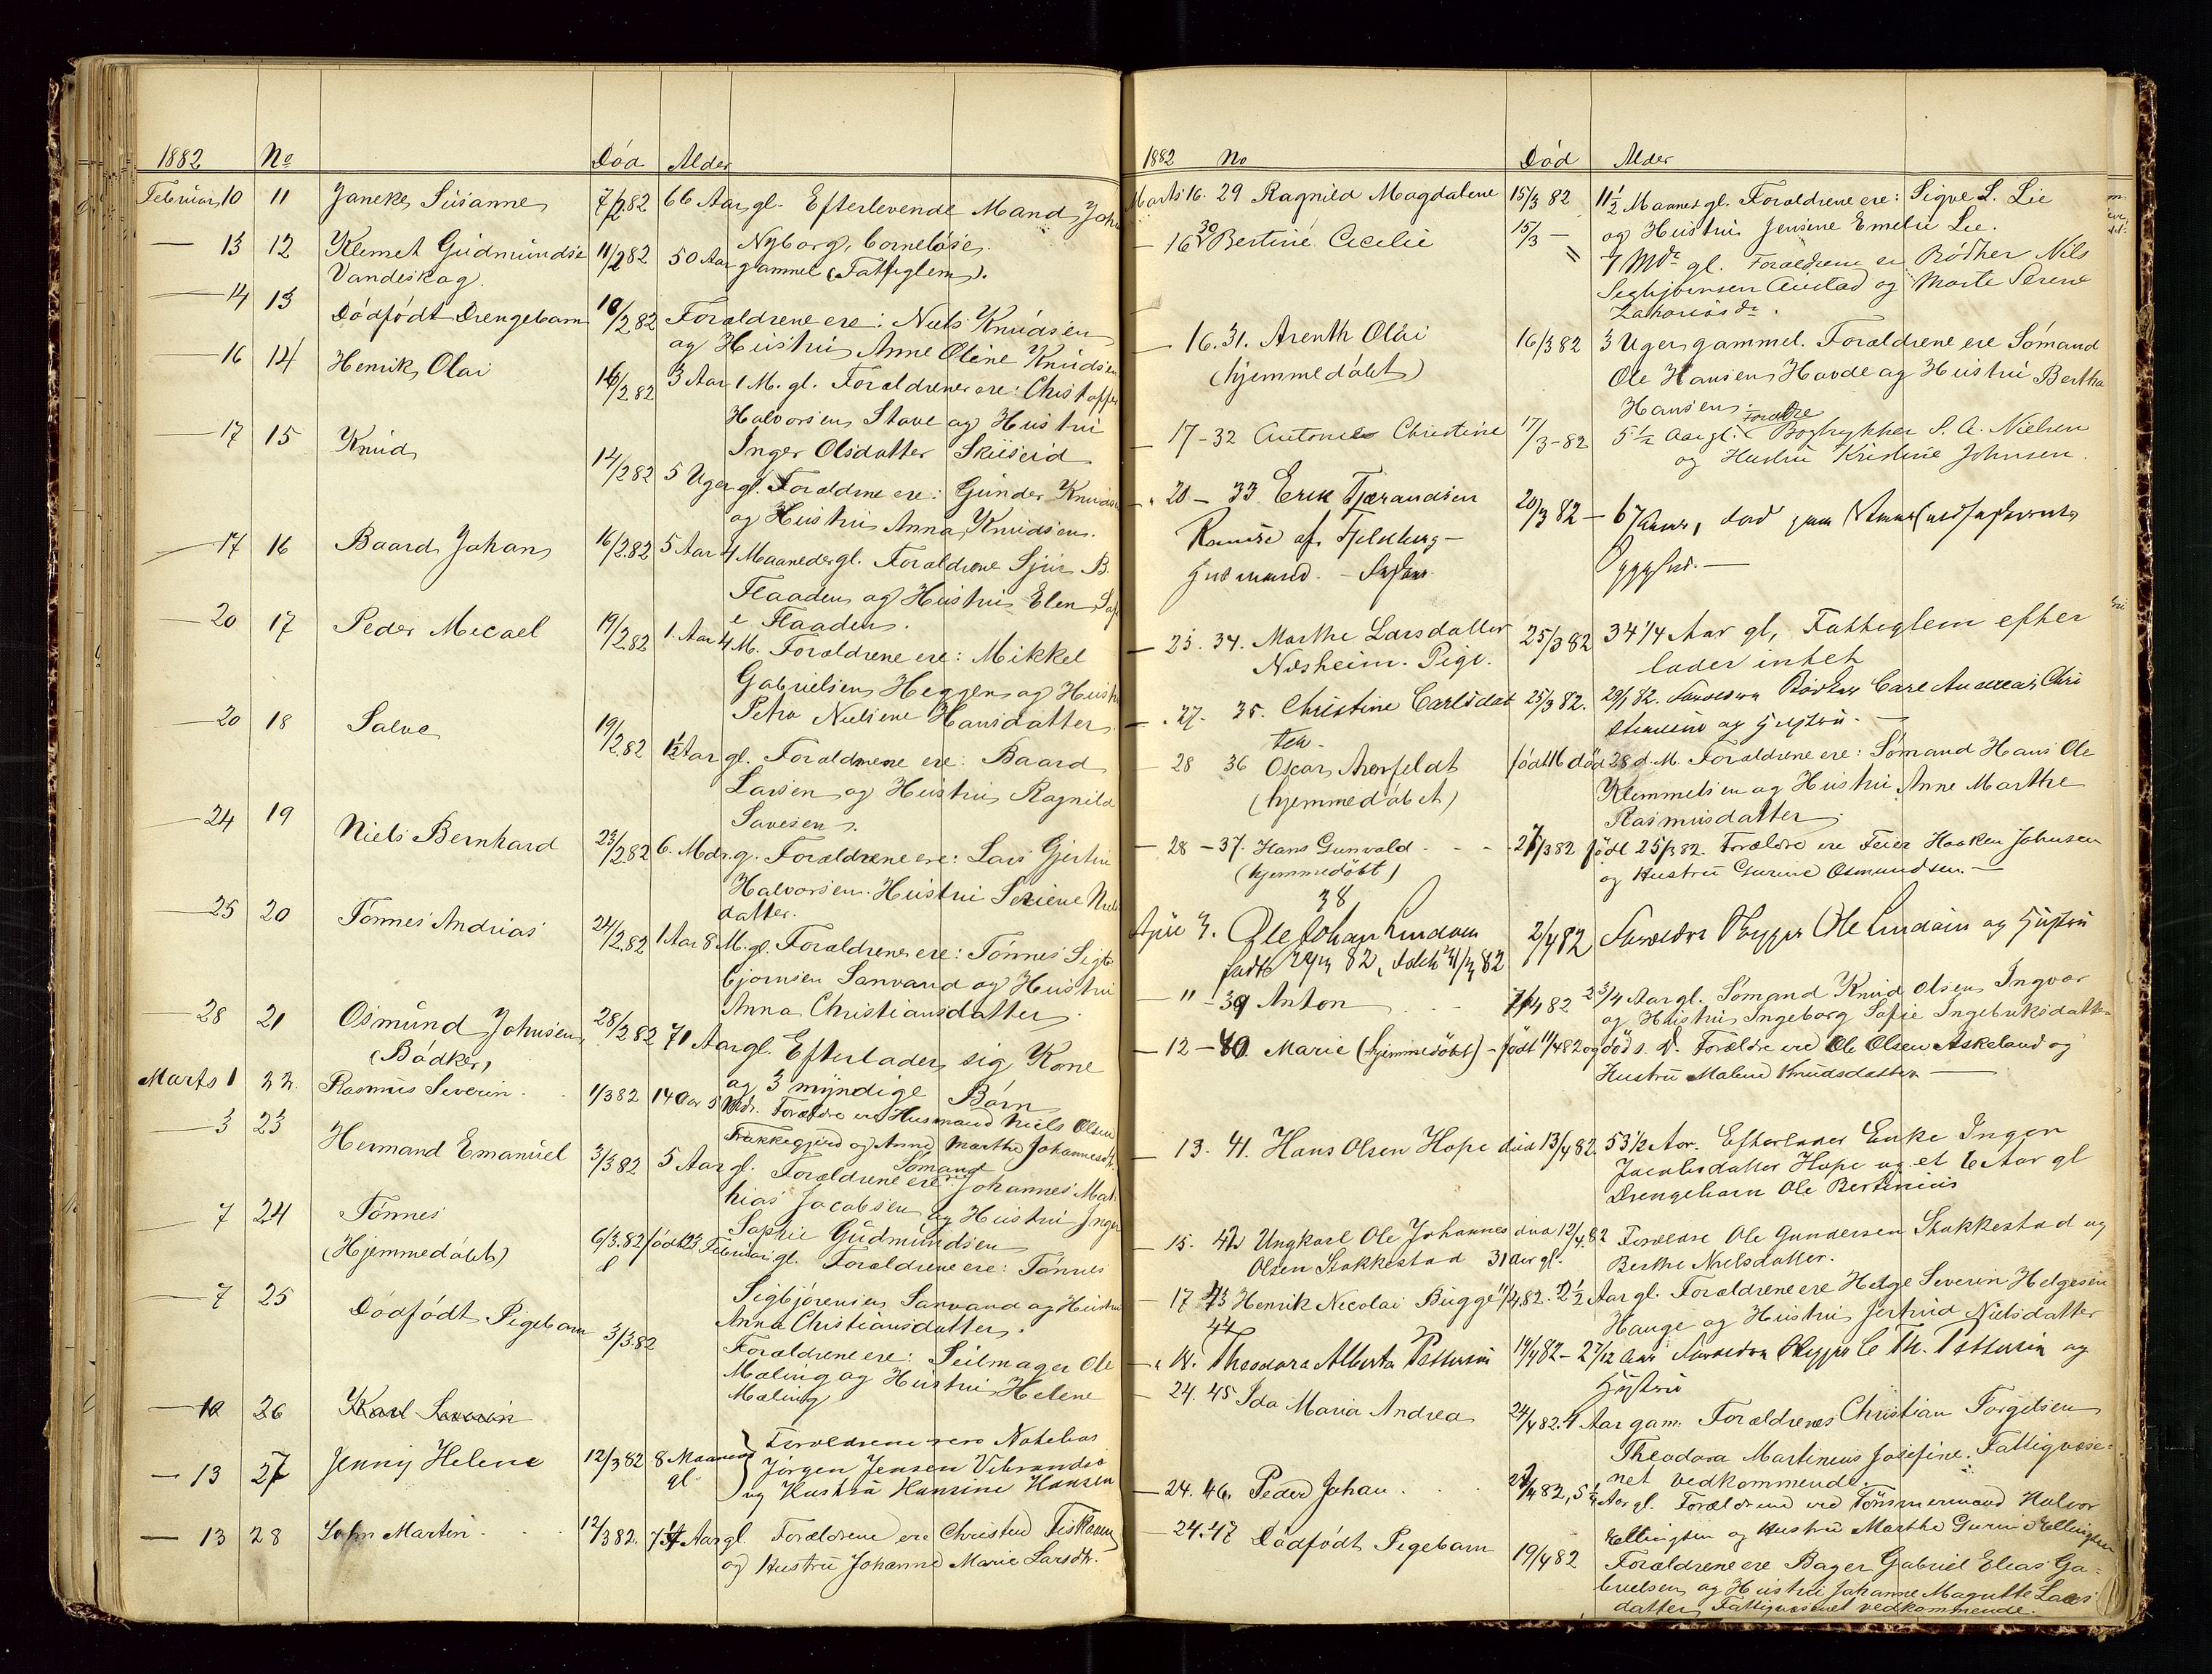 1882 No Död Alder
Februar 10 11 Janeke Susanne 7/2 82 66 Aar gl. Efterlevende Mand Joh
Nyborg, borneløse.
— 13 12 Klemet Gudmundse 11/2 82 50 Aar gammel (Fattiglem).
Vandeskog.
— 14 13 Dödfödt Drengebarn 10/2 82 Forældrene ere: Niels Knudsen
og Hustru Anne Oline Knudsen
— 16 14 Henrik Olai 16/2 82 3 Aar 1 M. gl. Forældrene ere: Christoffer
Halvorsen Stave og Hustru
Inger Olsdatter Skiiseid
— 17 15 Knud 14/2 82 5 Uger gl. Forældrene ere: Gunder Knuds
og Hustru Anna Knudsen.
— 17 16 Baard Johan 16/2 82 5 Aar 4 Maaneder gl. Forældrene Sjur B.
Flaaden og Hustru Elen Sof
e Flaaden.
— 20 17 Peder Mecael 19/2 82 1 Aar 4 M. Forældrene ere: Mikkel
Gabrielsen Heggen og Hustr
Petra Nielsine Hansdatter.
— 20 18 Salve 19/2 82 1½ Aar gl. Forældrene ere: Baard
Larsen og Hustru Ragnild
Savesen.
— 24 19 Niels Bernhard 23/2 82 6 Mdr. g. Forældrene ere: Lars Gjertin
Halvorsen. Hustru Seriene Niels
datter.
— 25 20 Tönnes Andrias 24/2 82 1 Aar 8 M. gl. Forældrene ere: Tönnes Sigb
bjornsen Sanvand og Hustru
Anna Christiansdatter.
— 28 21 Osmund Johnsen 28/2 82 71 Aar gl. Efterlader sig Kone
(Bödker) og 3 myndige Börn
Marts 1 22. Rasmus Severin 1/3 82 14 Aar 5 Mdr. Forældre ere Husmand Niels Olsen
Trakkegjerd og Anne Marthe Johannesdt.
— 3 23 Hermand Emanuel 3/3 82 5 Aar gl. Forældrene ere Sömand Johannes Mat
hias Jacobsen og Hustru Inger
Sophie Gudmundsen
— 7 24 Tönnes 6/3 82 födt 23 Februar gl. Forældrene ere: Tönnes
(Hjemmedöbt) Sigbjörensen Sanvand og Hustru
Anna Christiansdatter.
— 7 25 Dödfödt Pigebarn 3/3 82 Forældrene ere: Seilmager Ole
Mæling og Hustru Helene
Mæling
— 10 26 Karl Severin
— 13 27 Jenny Helene 12/3 82 8 Maaneder gl Forældrene ere Notebas
Jörgen Jensen Vibrandsö
og Hustru Hansine Hansen
— 13 28 John Martin 12/3 82. 7¼ Aar gl. Forældrene ere Christen Fiskaaen
og Hustru Johanne Marie Larsdtr.
1882 No Död Alder
Marts 16. 29 Ragnild Magdalene 15/3 82 11½ Maaned gl. Forældrene ere: Sigve L. Lie
og Hustru Jensine Emelie Lie.
— 16 30 Bertine Cecilie 15/3 — 7 Mdr gl. Forældrene er Bödker Nils
Segbjörnsen Austad og Marte Serene
Zakariasdr.
— 16. 31. Arenth Olai 16/3 82 3 Uger gammel. Forældrene ere Sömand
(hjemmedöbt) Ole Hansen Havde og Hustru Bertha
Hansen.
— 17 - 32 Antonie Christine 17/3 - 82 5½ Aar gl. Forældre Bogtrykker S. A. Nielsen
og Hustru Kristine Johnsen.
" 20 — 33 Erik Tjerandsen 20/3 82 — 67 Aar,
af Fjeldberg —
— 25. 34. Marthe Larsdatter 25/3 82 34 1/4 Aar gl, Fattiglem efter
Næsheim. Pige. lader intet
— 27. 35. Christine Carlsdat 25/3 82. 29/1 82. Forældre Bödker Carl Andreas Chri
ter. stensen og Hustru. —
— 28 36 Oscar Arenfeldt födt 16 död 28 d. M. Forældrene ere: Sömand Hans Ole
(hjemmedöbet) Klemmetsen og Hustru Anne Marthe
Rasmusdatter.
— 28 — 37. Hans Gunvald 27/3 82 födt 25/3 82. Forældre ere Feier Haaken Johnsen
(hjemmedöbt) og Hustru Gurine Osmundsen. —
38
April 3. Ole Johan Lindøen 2/4 82 Forældre Ole Lindøen og Hustru
født 29/3 82, døbt 31/3 82
— " — 39 Anton 7/4 82 2 3/4 Aar gl. Sömand Knud Olsen Ingvar
og Hustru Ingeborg Sofie Ingebriksdatter
— 12 — 40. Marie (hjemmedöbt) — födt 11/4 82 og död s. D. Forældre ere Ole Olsen Askeland og
Hustru Malene Knudsdatter —
— 13. 41. Hans Olsen Hope död 13/4 82 53½ Aar. Efterlader Enke Inger
Jacobsdatter Hope og et 6 Aar gl
Drengebarn Ole Bertinius
— 15. 42 Ungkarl Ole Johannes död 12/4 82 Forældre Ole Gundersen Stokkestad og
Olsen Stokkestad 31 Aar gl. Berthe Nielsdatter.
— 17 43 Henrik Necolai Bugge 11/4 82. 2½ Aar gl. Forældrene ere Helge Severin Helgesen
Hauge og Hustru Jertrud Nielsdatter
44
— " 18. Theodora Alberta Pettersen 14/4 82 — 2 7/12 Aar Forældre C Th. Pettersen og
Hustru
— 24. 45 Ida Maria Andrea 24/4 82. 4 Aar gam. Forældrenes Christian Torgelsen
Theodora Martinius Josefine. Fattigvæse=
net vedkommende.
— 24. 46. Peder Johan 24/4 82, 5½ Aar gl. Forældrene ere Tömmermand Halvor
Ellingsen og Hustru Marthe Gurine Ellingsen
— 24. 47 Dödfödt Pigebarn 19/4 82 Forældrene ere Bager Gabriel Elias Ga=
brielsen og Hustru Johanne Magrethe Lars
datter, Fattigvæsenet vedkommende.